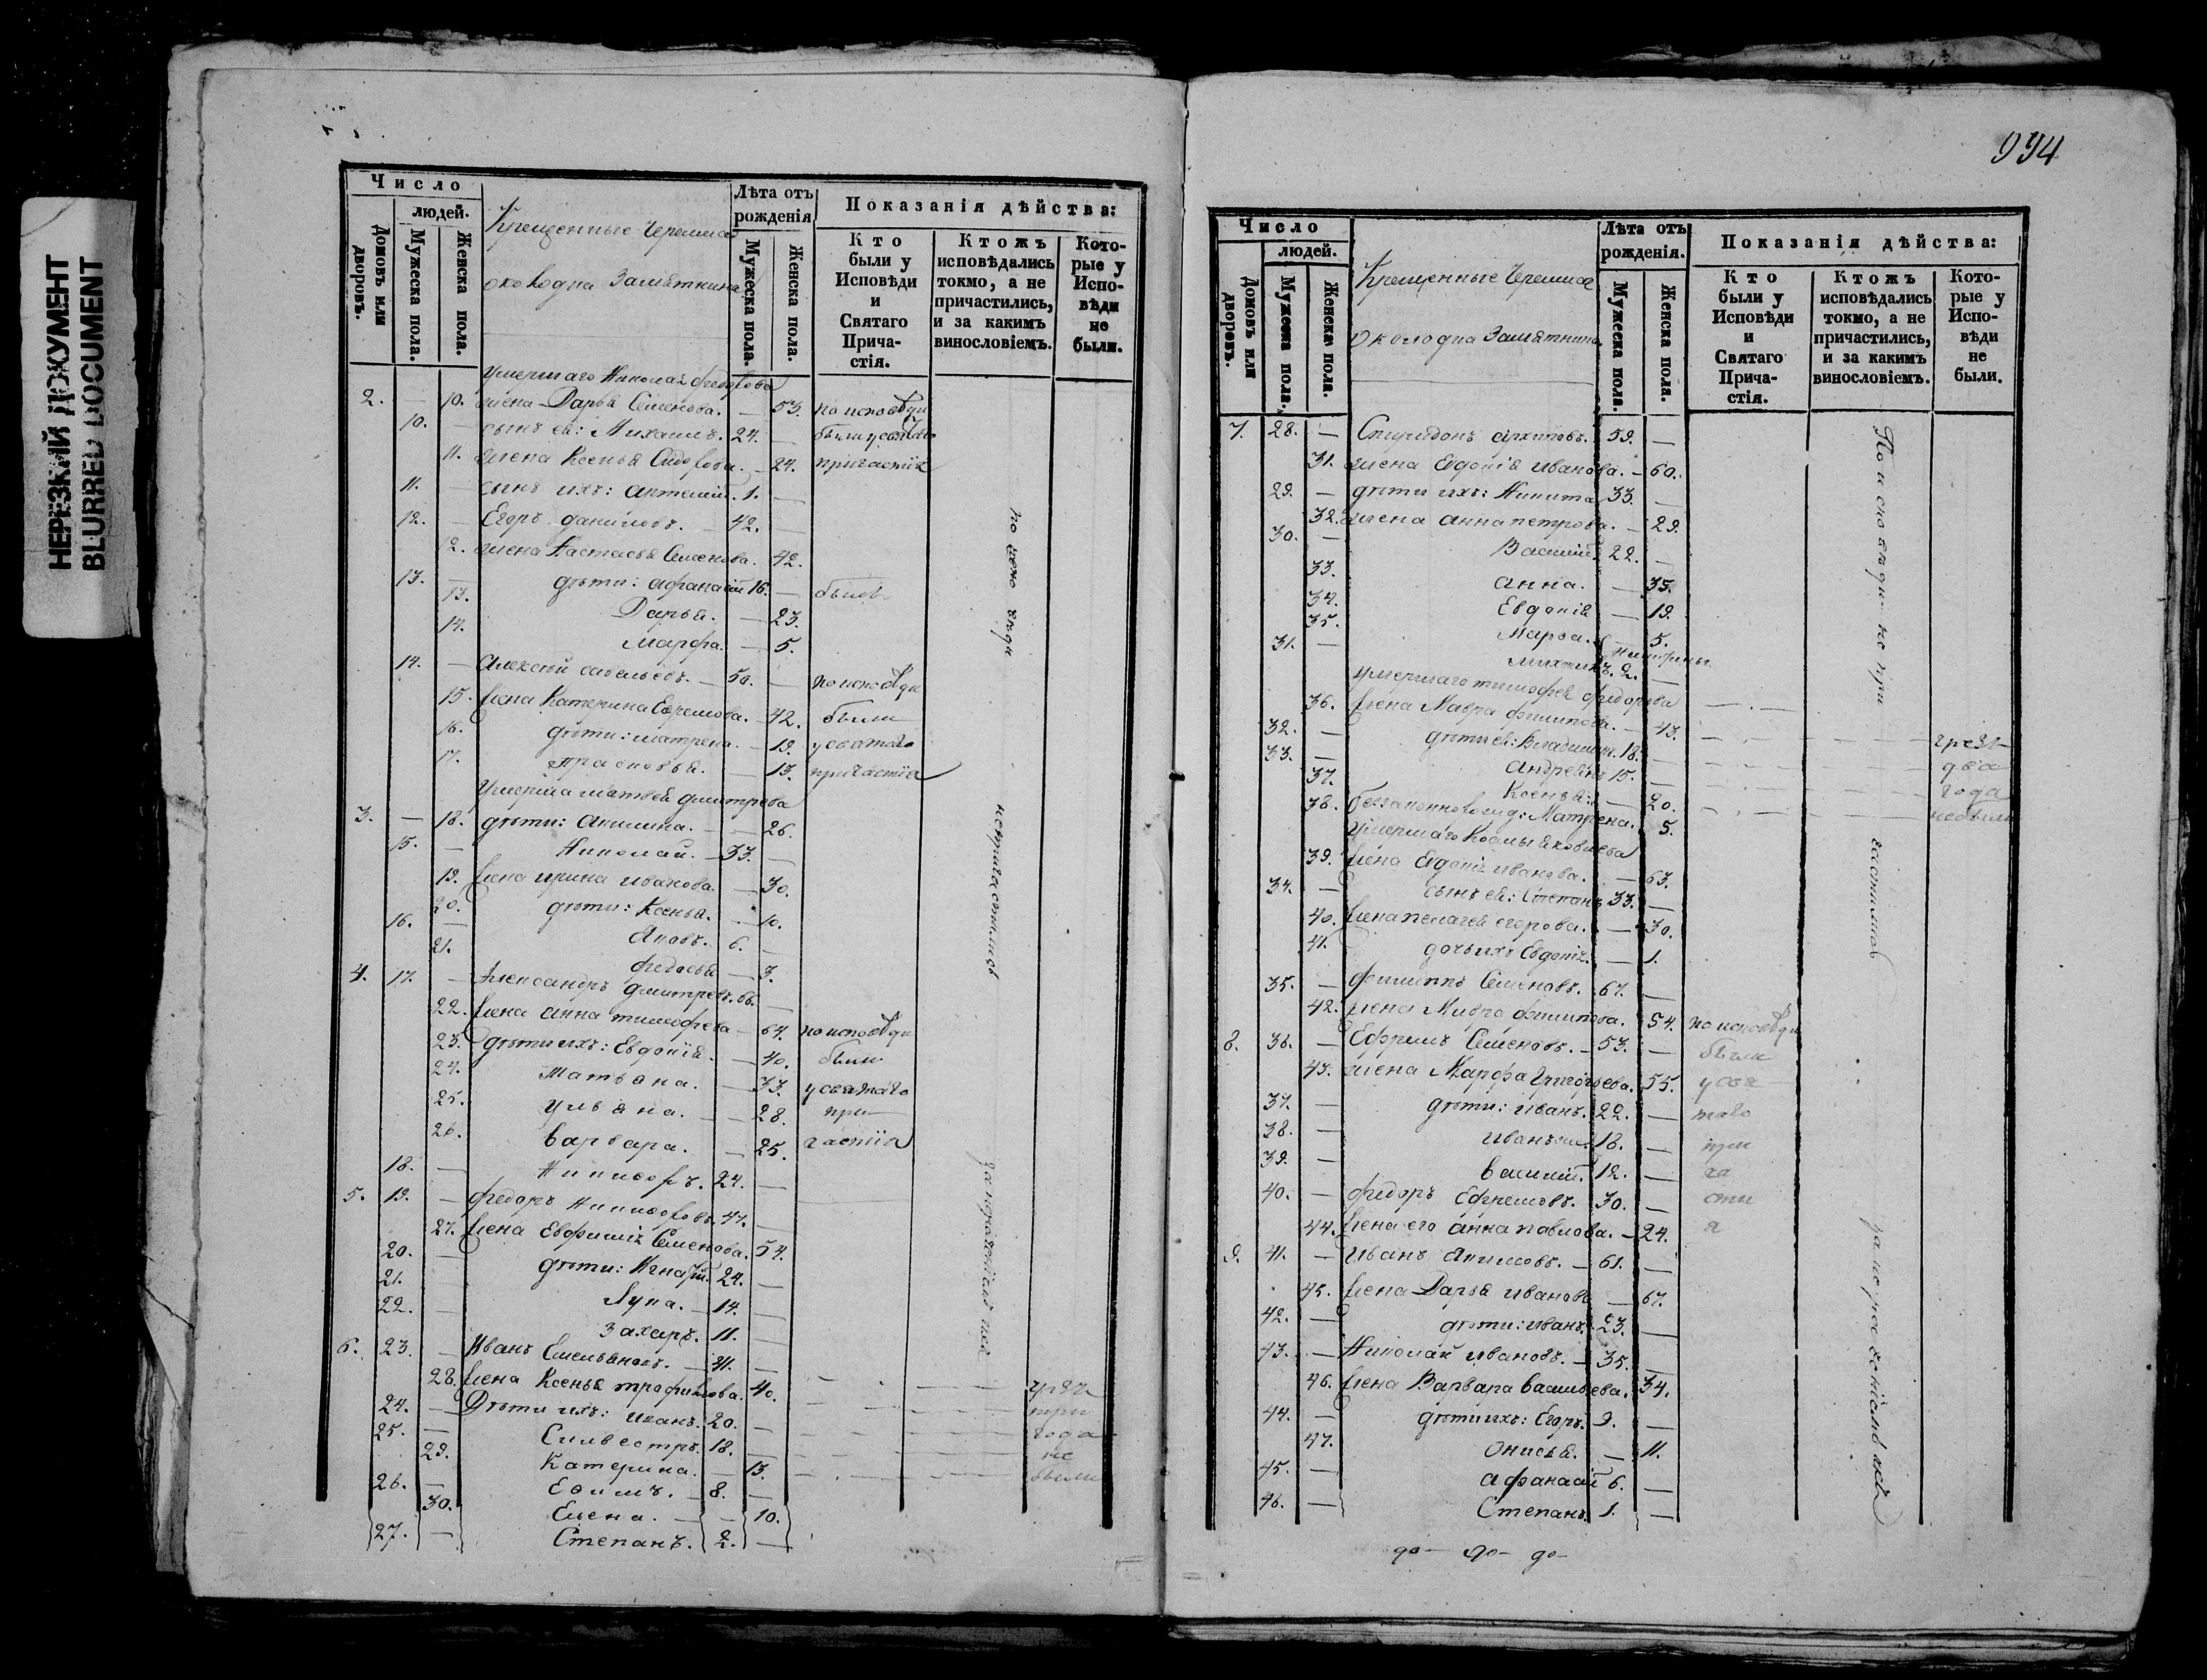 НЕРЕЗКИЙ ДОКУМЕНТ
BLURRED DOCUMENT
Число
людей.
Домовъ или дворовъ.
Мужеска пола.
Женска пола.
Крещенные Черемиса
околодка Замяткина
Лѣта отъ рожденія
Мужеска пола.
Женска пола.
Показанія дѣйства:
Кто были у Исповѣди и Святаго Причастія.
Ктожъ исповѣдались токмо, а не причастились, и за какимъ винословіемъ.
Которые у Исповѣди не были.
Умершаго Николая Федорова
2. — 10. жена Дарья Семенова. — 53. по исповѣди
10. — сынъ ея: Михаилъ. 24. — были у святаго
11. жена Ксенья Сидорова. — 24. причастія
11. — сынъ ихъ: Антемій. 1. —
12. — Егоръ Даниловъ. 42. —
12. жена Настасья Семенова. 42.
13. — дѣти: Афанасій 16. — былъ
13. Дарья. — 23.
14. Марфа. — 5.
14. — Алексѣй Савельевъ. — 50. — по исповѣди
15. жена Катерина Ефремова. — 42. были
16. дѣти: Матрена. — 19. у святаго
17. Прасковья. — 13. причастія
Умерша Матвея Дмитрева
3. — 18. дѣти: Акилина. — 26.
15. — Николай. — 33. —
19. жена Ирина Иванова. — 30.
20. дѣти: Ксенья. — 10.
16. — Яковъ. 6. —
21. Федосья — 3.
4. 17. — Александръ Дмитревъ. 66. —
22. жена Анна Тимофева — 64. по исповѣди
23. дѣти ихъ: Евдокія. — 40. были
24. Матьяна. — 33. у святаго
25. Ульяна. — 28. при
26. Варвара. — 25. частія
18. — Никифоръ. 24. —
5. 19. — Федоръ Никифоровъ 47. —
27. жена Евфимія Семенова. 54.
20. — дѣти: Игнатій. 24. —
21. Лука. — 14. —
22. — Захаръ. 11. —
6. 23. — Иванъ Емельяновъ. — 41. —
28. жена Ксенья Трофимова. 40.
24. — Дѣти ихъ: Иванъ. 20. — три
25. — Сильвестръ. 18. — года
29. Катерина. — 13. не
26. — Ефимъ. — 8. — были
30. Елена. — 10.
27. — Степанъ. 2. —
994
Число
людей.
Домовъ или дворовъ.
Мужеска пола.
Женска пола.
Крещенные Черемиса
околодка Замяткина
Лѣта отъ рожденія.
Мужеска пола.
Женска пола.
Показанія дѣйства:
Кто были у Исповѣди и Святаго Причастія.
Ктожъ исповѣдались токмо, а не причастились, и за какимъ винословіемъ.
Которые у Исповѣди не были.
7. 28. — Спиридонъ Архиповъ. 59. —
31. жена Евдокія Иванова. — 60.
29. — дѣти ихъ: Никита 33. —
32. жена Анна Петрова. — 29.
30. — Василій. 22. —
33. Анна. — 35.
34. Евдокія — 19.
35. Марѳа. — 5.
31. — 2. —
Умершаго Тимофея Федорова
36. жена Мавра Филипова. — 43.
32. — дѣти ея: Владимиръ. 18.
33. — Андреянъ 15. — два
37. Ксенья: — 20. года
38. Матрена. 5. не были
Умершаго Космы Яковлева
39. жена Евдокія Иванова. — 63.
34. — сынъ ея: Степанъ 33. —
40. жена Пелагея Егорова. — 30.
41. дочь ихъ Евдокія. — 1.
35. — Филиппъ Семеновъ. 67. —
42. жена Мавра Филипова. 54. по исповѣди
8. 36. — Ефремъ Семеновъ. — 53. — были
43. жена Марфа Григорьева. 55. у свя
37. — дѣти: Иванъ. 22. — таго
38. — Иванъ 18. — при
39. — Василій. 12. — ча
40. — Федоръ Ефремовъ. 30. — сти
44. жена его Анна Павлова. — 24. я
9. 41. — Иванъ Акимовъ. — 61. —
45. жена Дарья Иванова — 67.
42. — дѣти: Иванъ. 23. —
43. — Николай Ивановъ. — 35. —
46. жена Варвара Васильева. 34.
44. — дѣти ихъ: Егоръ. 9. —
47. Онисья. — 11.
45. — Афанасій 6. —
46. — Степанъ. 1. —
до — до — до —